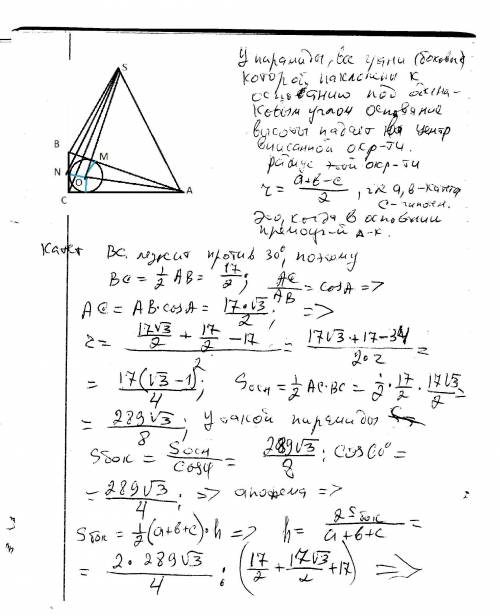 У пирамиды, все грани (боковые)
которой наклонены к
основанию под одина-
ковым углом основание
высоты падает на центр
вписанной окр-ти.
радиус этой окр-ти
r = (a+b-c)/2, где a, b - катеты
c - гипотен.
Это, когда в основании
прямоуг-й Δ-к.
S
B
M
N
O
C
A
Катет BC лежит против 30°, поэтому
BC = 1/2 AB = 17/2; AC/AB = cosA =>
AC = AB·cosA = 17·√3/2; =>
r = (17√3/2 + 17/2 - 17)/2 = (17√3 + 17 - 34)/(2·2) =
= 17(√3 - 1)/4; Sосн = 1/2 AC·BC = 1/2 · 17/2 · 17√3/2 =
= 289√3/8; У такой пирамиды
Sбок = Sосн/cosφ = 289√3/8 : cos60° =
= 289√3/4; => апофема =>
Sбок = 1/2 (a+b+c)·h => h = 2Sбок/(a+b+c) =
= 2·289√3/4 : (17/2 + 17√3/2 + 17) =>